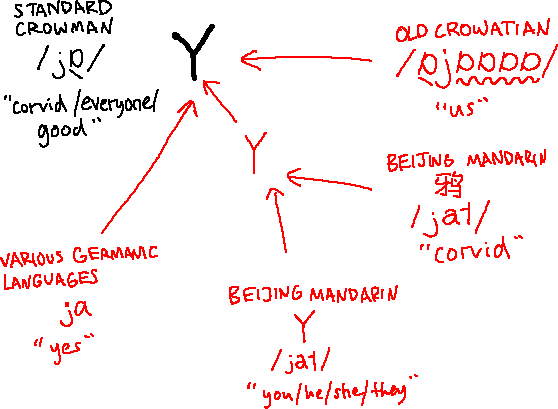 STANDARD
CROWMAN
/jɒ̰/
"corvid/everyone/
good"
Y
OLD CROWATIAN
/ɒ̰jɒ̰ɒ̰ɒ̰ɒ̰/
"us"
Y
BEIJING MANDARIN
鸦
/ja˦/
"corvid"
VARIOUS GERMANIC
LANGUAGES
ja
"yes"
BEIJING MANDARIN
Y
/ja˦/
"you/he/she/they"